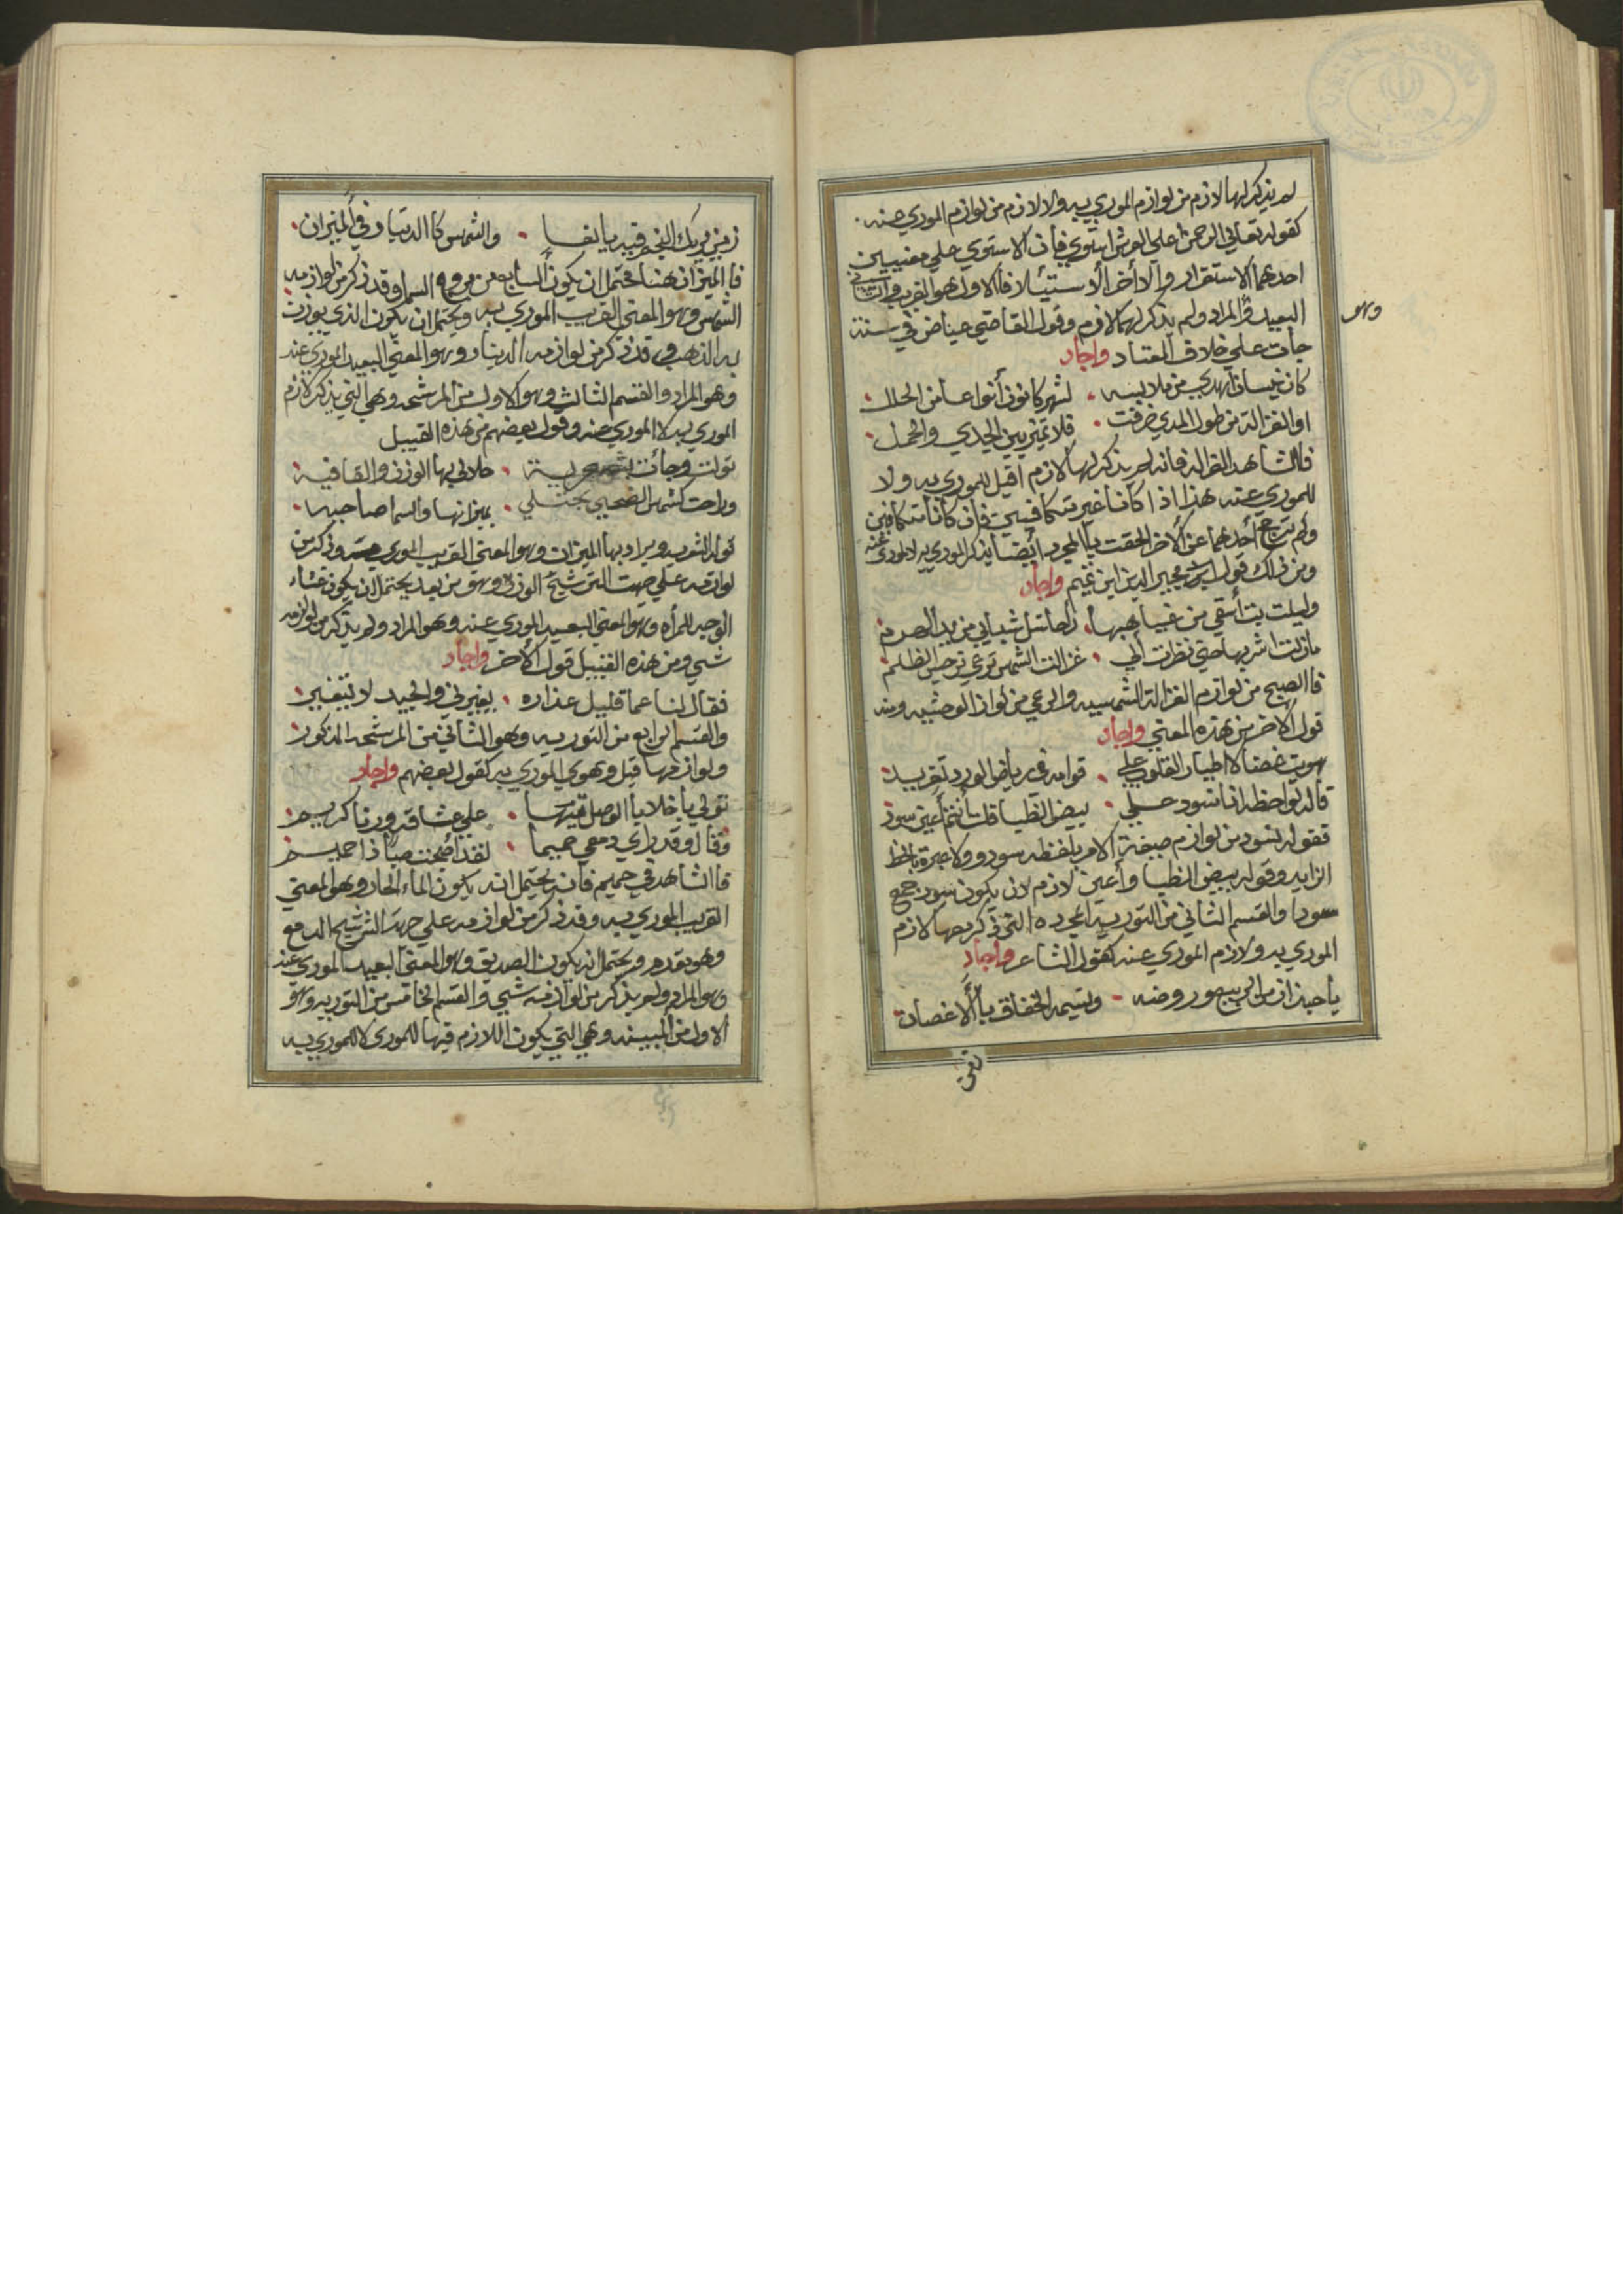 لم يذكر لها لازم من لوازم الموري به ولا لازم من لوازم الموري عنه
كقوله تعالي الرحمن علي العرش استوي فأن الاستوي علي معنيين
احدهما الاستقرار والاخر الاستيلا فالاول هو القريب والثاني
وهو
البعيد والمراد ولم يذكر لهما لازم وقول القاضي عياض في سنة
جات علي خلاف المعتاد واجاد
كان نيسان اهدي من ملابسه لشهر كانون أنواعا من الحلل
او الغزالة من طول المدي خرفت فلا تميز بين الجدي والحمل
فالشاهد الغزالة فانه لم يذكر لها لازم اقبل للموري به ولا
للموري عنه هذا اذا كانا غير متكافيين فان كانا متكافيين
ولم يترجح أحدهما عن الاخر الحقت بالمجرد أيضا يذكر الموري به لا لموري عنه
ومن ذلك قول مجير الدين ابن تميم واجاد
وليلت بت أسقي من غياهبها راحا تسل شبابي من يد الهرم
مازلت اشربها حتي نظرت الي غزالت الشمس ترعي نرجس الظلم
فالصبح من لوازم الغزالة الشمسيه والرعي من لوازم الوحشيه ومنه
قول الاخر من هذه المعني واجاد
هويت غصنا لاطيار القلوب علي قوامه في رياض الورد تغريد
قالت لواحظه انا نسود علي بيض الظبا قلت أنتم أعين سود
فقوله نسود من لوازم صيغة الامر بلفظه سودوو ولا عبرة بالخط
الزايد وقوله بيض الظبا وأعين لازم لان يكون سود جمع
سودا والقسم الثاني من التوريه المجرده التي ذكر معها لازم
الموري به ولازم الموري عنه كقول الشاعر واجاد
ياحبذا زمن الربيع وروضه ونسيمه الخفاق بالاغصان
زمن
زمن يريك النجم فيه يانعا والشمس كاالدينار في الميزان
فاالميزان هنا محتمل ان يكون السابعه من بروج السما وقد ذكر من لوازمه
الشمس وهو المعني القريب الموري به ويحتمل ان يكون الذي يوزن
به الذهب وقد ذكر من لوازمه الدينار وهو المعني البعيد الموري عنه
وهو المراد والقسم الثالث وهو الاول من المرشحه وهي التي يذكر لازم
الموري به لا الموري عنه وقول بعضهم من هذه القبيل
تولت وجأت حلالي بها الوزن والقافيه
وراحت كشمس الضحي تجتلي بميزانها والسما صاحيه
وهو المعني القريب الموري وذكر من
لوازمه علي جهت الترشيح الوزن وهو من بعيد يحتمل ان يكون غشاء
الوجه للمرأه وهو المعني البعيد الموري عنه وهو المراد ولم يذكر من لوازمه
شيء ومن هذه القبيل قول الاخر واجاد
فقال لنا عما قليل عذاره يغيرني والجيد لا يتغير
والقسم الرابع من التوريه وهو الثاني من المرشحه المذكور
ولوازمها قبل وهوي الموري به كقول بعضهم واجاد
تولي ياخلايا الوصل فيها علي عشاقه ورنا كريم
وقال وقد راي دمعي حميما لقد أضحت صبا ذا حميم
فاالشاهد في حميم فأنه يحتمل انه يكون الماء الحار وهو المعني
القريب الموري به وقد ذكر من لوازمه علي جهة الترشيح الدمع
وهو يقدم ويحتمل ان يكون الصديق وهو المعني البعيد الموري عنه
وهو المراد ولم يذكر من لوازمه شيء والقسم الخامس من التوريه وهو
الاول من المبينه وهي التي يكون اللازم فيها للموري لا للموري به